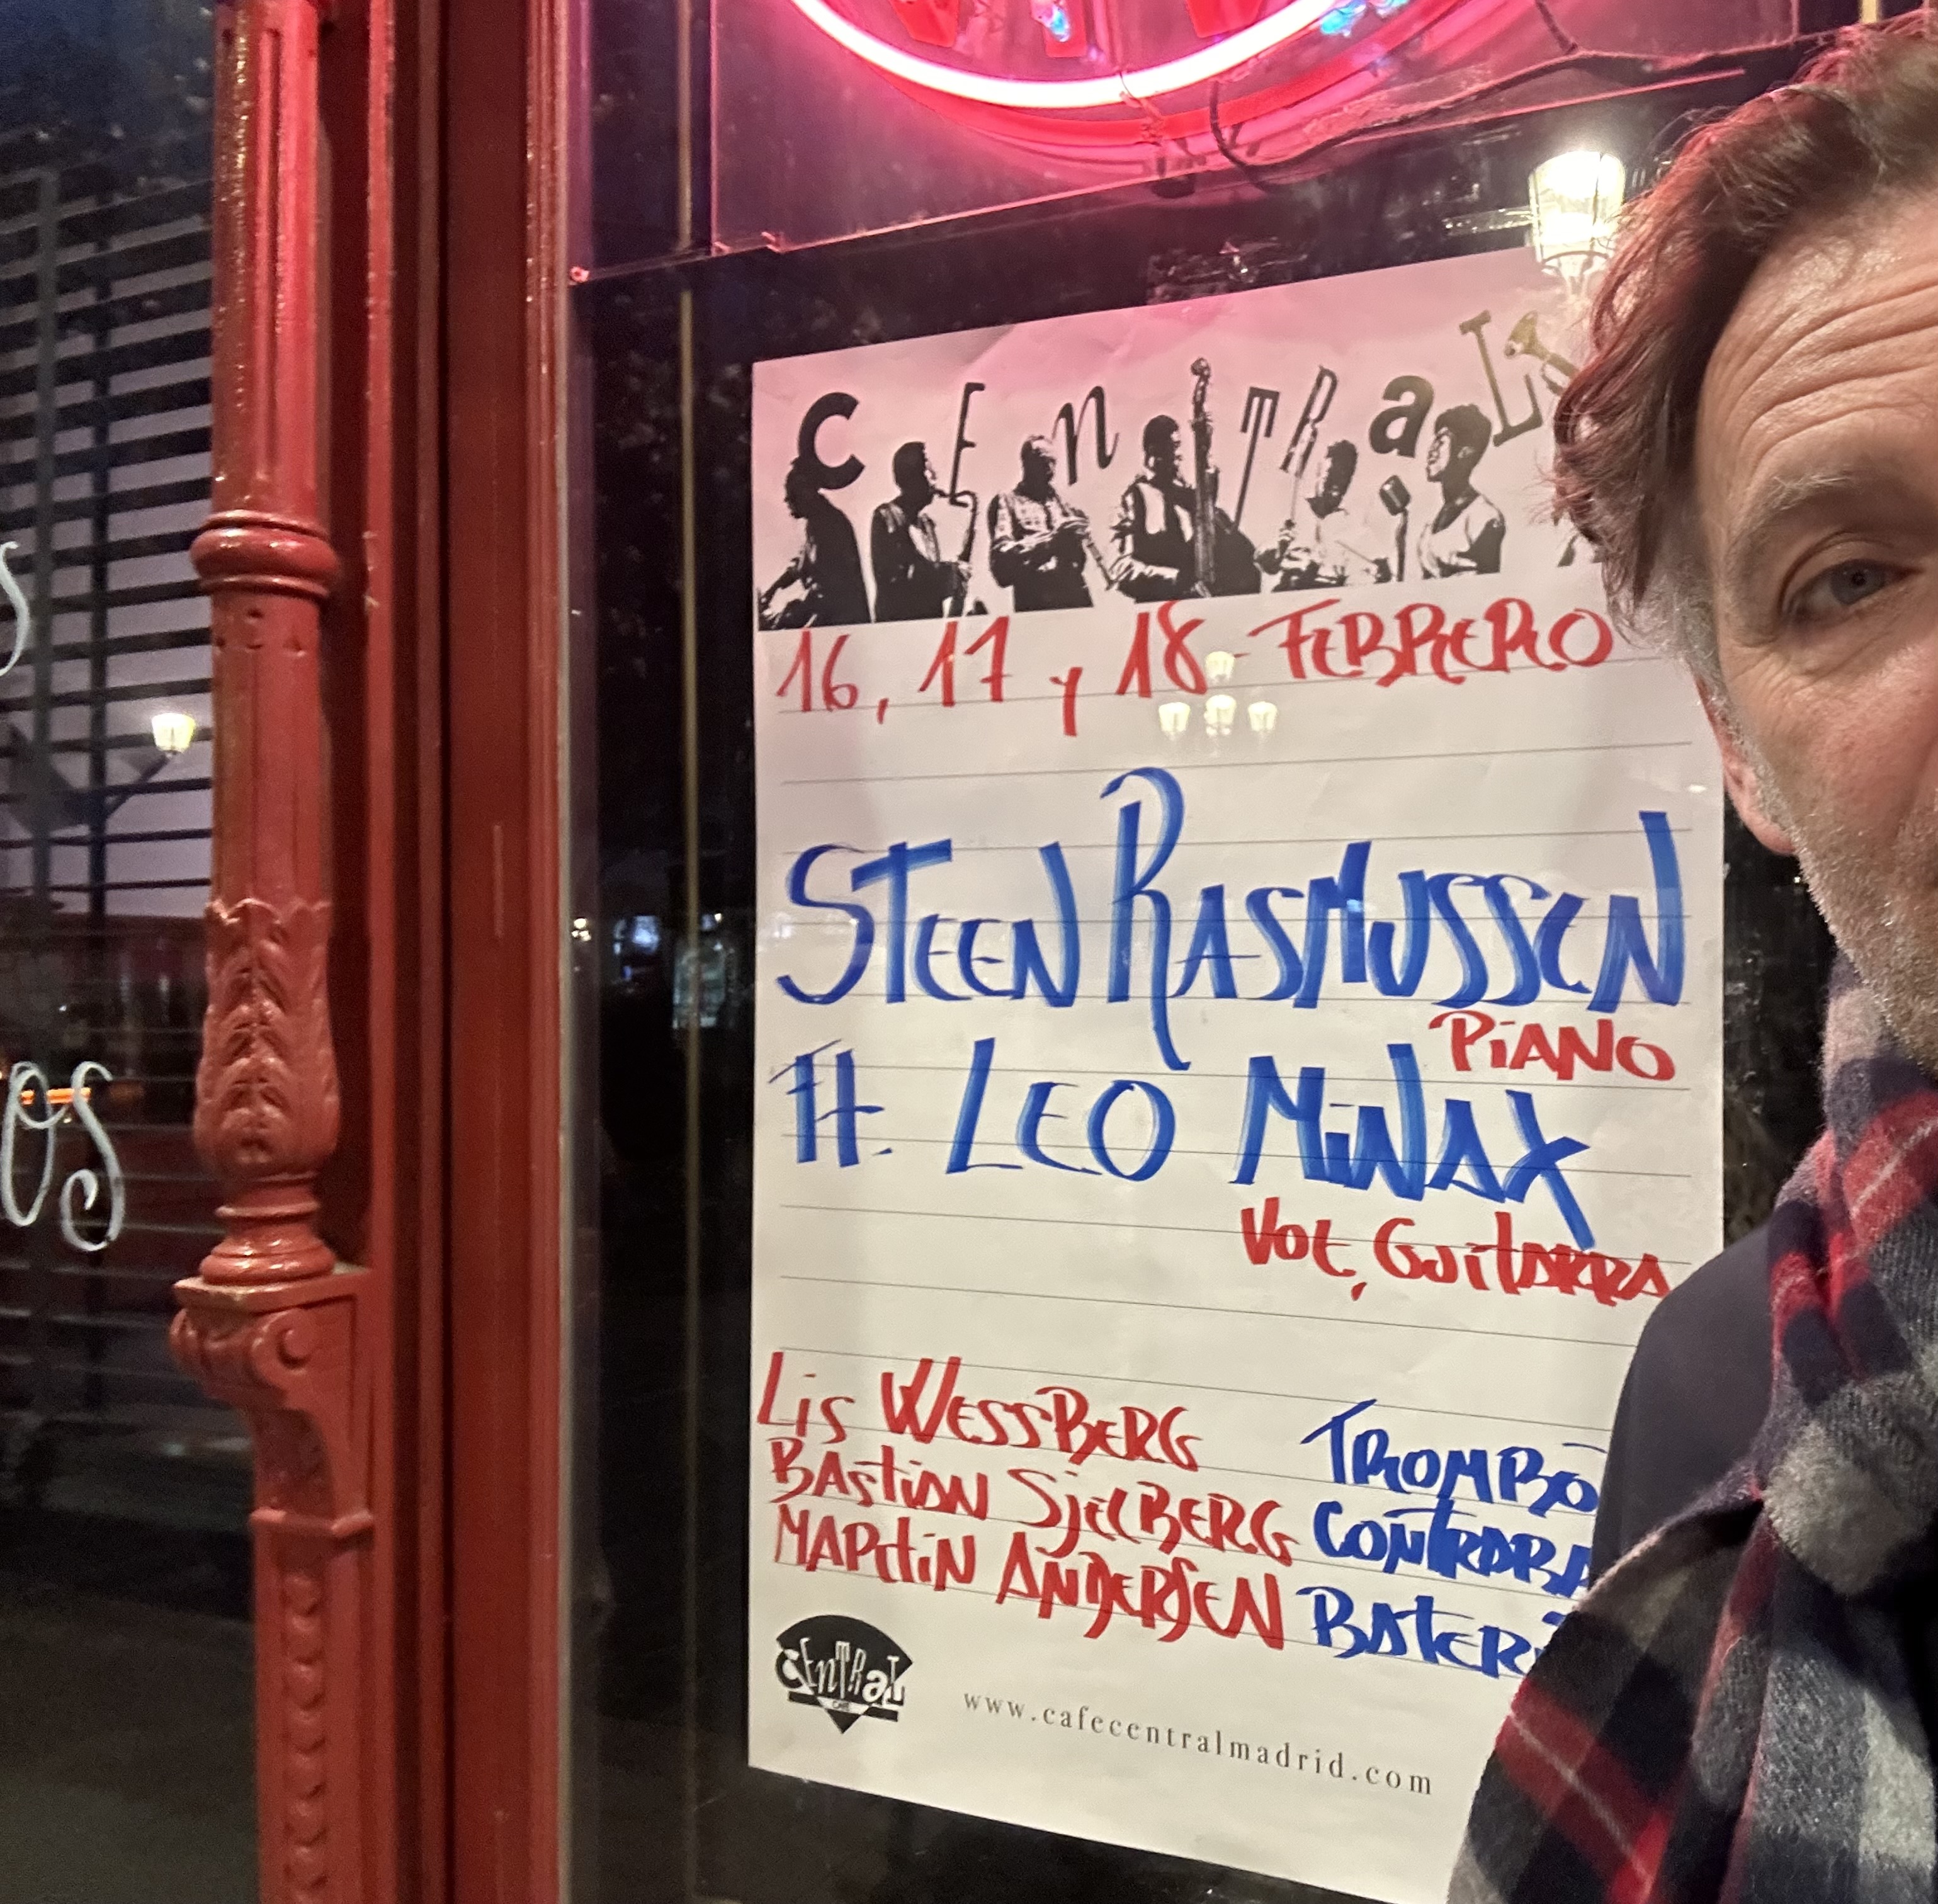 CENTRAL
16, 17 y 18 - FEBRERO
STEEN RASMUSSEN
PIANO
Ft. LEO MINAX
Voz, GuitARRA
Lis WESSBERG TROMBÓ
BAStiAN SjELBERG CONtRABA
MARtiN ANDERSEN BAtERí
CENTRAL
CAFE
www.cafecentralmadrid.com
OS